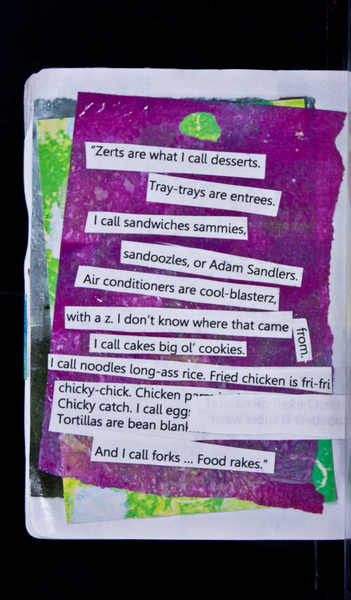 "Zerts are what I call desserts.
Tray-trays are entrees.
I call sandwiches sammies,
sandoozles, or Adam Sandlers.
Air conditioners are cool-blasterz,
with a z. I don't know where that came
from.
I call cakes big ol' cookies.
I call noodles long-ass rice. Fried chicken is fri-fri
chicky-chick. Chicken
Chicky catch. I call eggs
Tortillas are bean
And I call forks ... Food rakes."